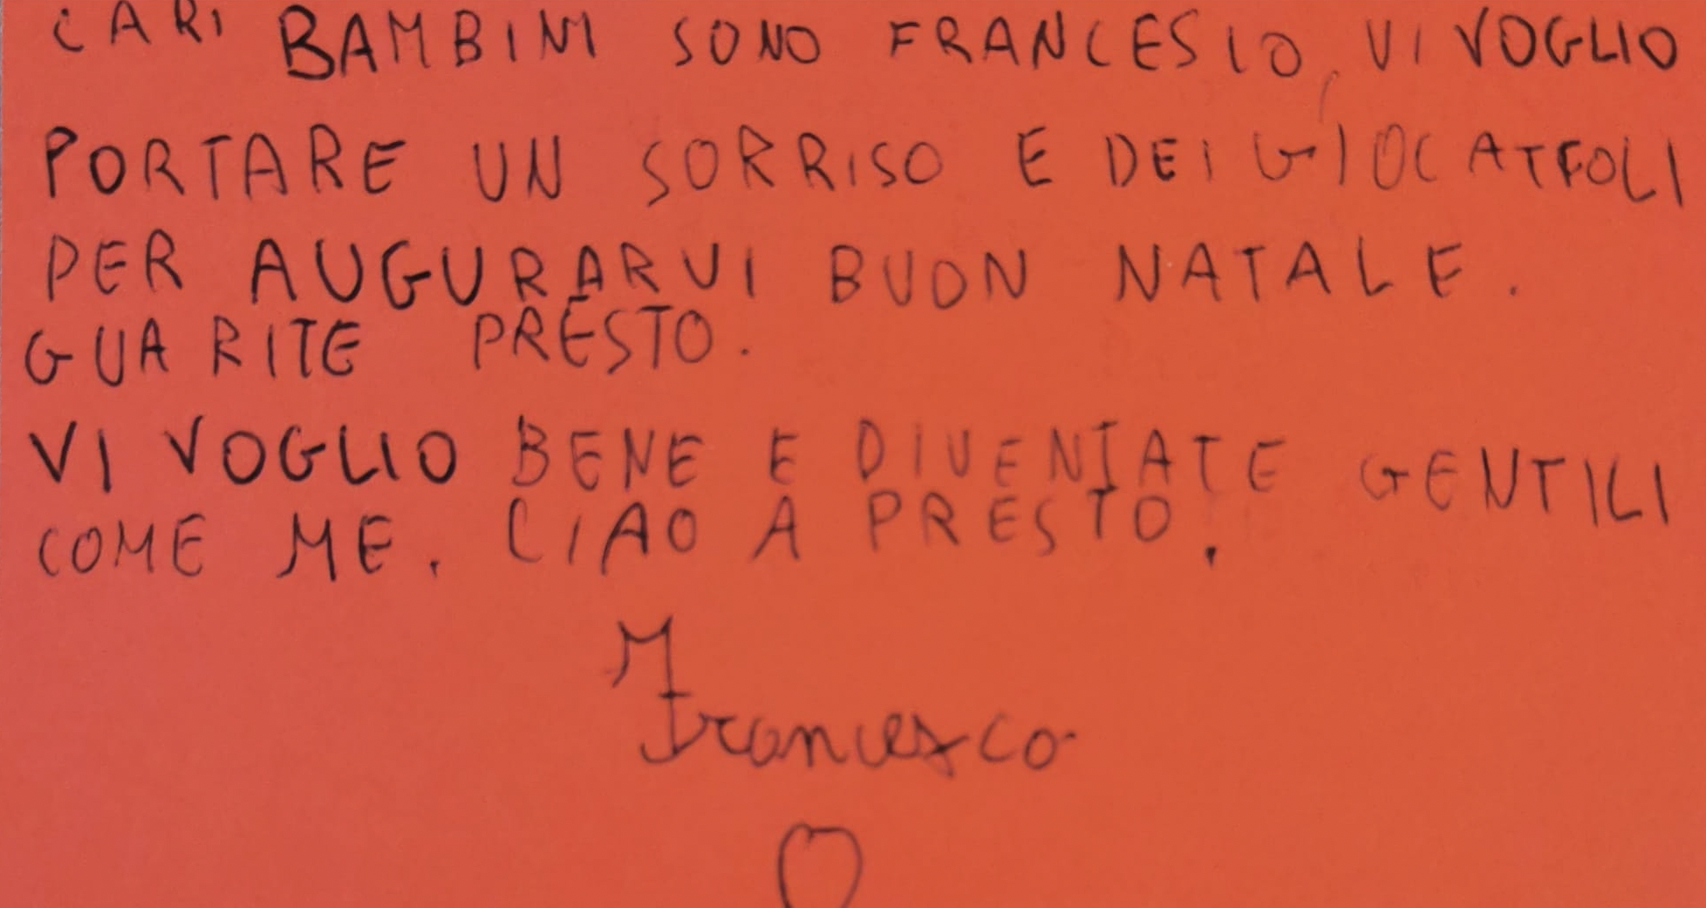 CARI BAMBINI SONO FRANCESCO, VI VOGLIO
PORTARE UN SORRISO E DEI GIOCATTOLI
PER AUGURARVI BUON NATALE.
GUARITE PRESTO.
VI VOGLIO BENE E DIVENTATE GENTILI
COME ME. CIAO A PRESTO.
Francesco